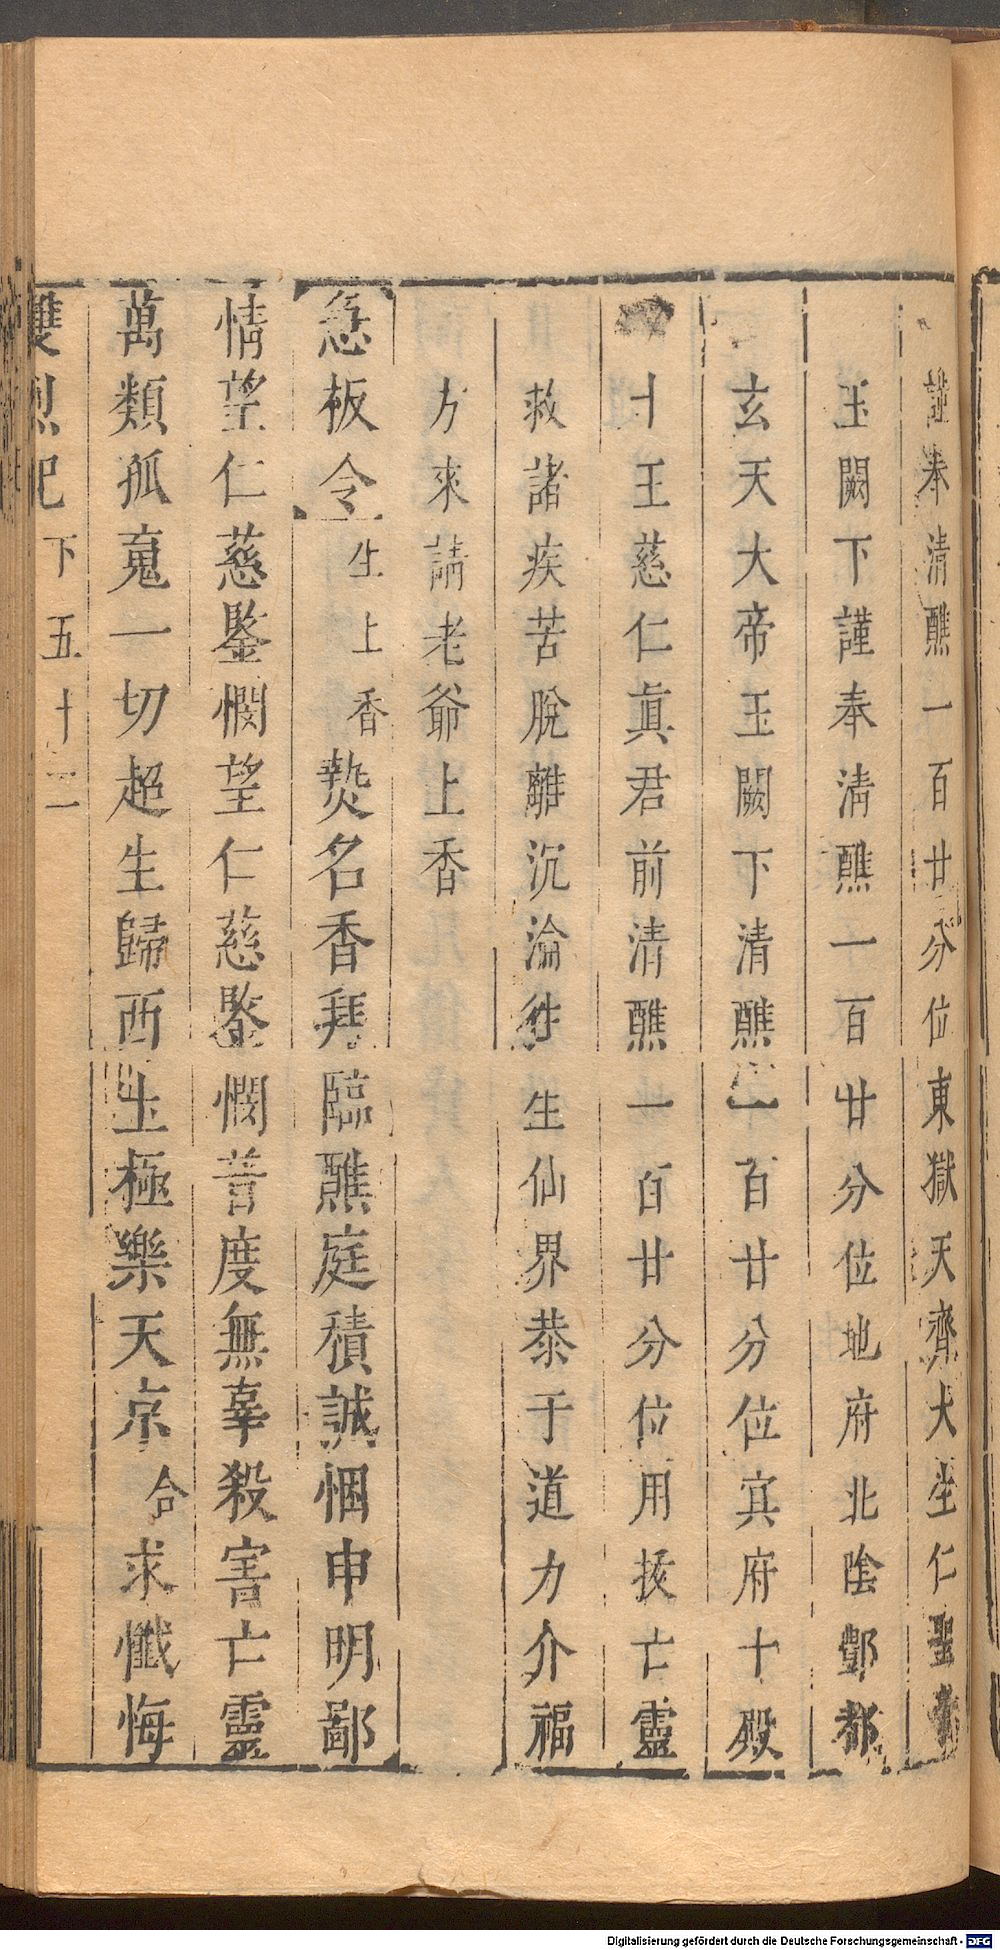 謹奉清醮一百廿分位東獄天齊大坐仁聖
玉闕下謹奉清醮一百廿分位地府北陰酆都
玄天大帝玉闕下清醮一百廿分位㝠府十殿
十王慈仁眞君前清醮一百廿分位用㧞亡靈
救諸疾苦脫離沉淪徃生仙界恭于道力介福
方來請老爺上香
急板令生上香爇名香拜臨醮庭積誠悃申明鄙
情望仁慈鑒憫望仁慈鑒憫善度無辜殺害亡靈
萬類孤䰟一切超生歸西土極樂天京合求懺悔
雙烈記 下 五十二
Digitalisierung gefördert durch die Deutsche Forschungsgemeinschaft - DFG